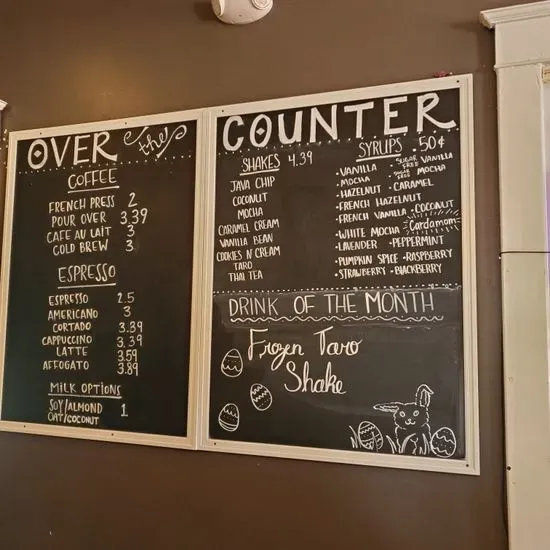 OVER the
COFFEE
FRENCH PRESS 2
POUR OVER 3.39
CAFE AU LAIT 3
COLD BREW 3
ESPRESSO
ESPRESSO 2.5
AMERICANO 3
CORTADO 3.39
CAPPUCCINO 3.39
LATTE 3.59
AFFOGATO 3.89
MILK OPTIONS
SOY/ALMOND 1
OAT/COCONUT
COUNTER
SHAKES 4.39
JAVA CHIP
COCONUT
MOCHA
CARAMEL CREAM
VANILLA BEAN
COOKIES N CREAM
TARO
THAI TEA
SYRUPS .50¢
•VANILLA SUGAR FREE VANILLA
•MOCHA SUGAR FREE MOCHA
•HAZELNUT •CARAMEL
•FRENCH HAZELNUT
•FRENCH VANILLA •COCONUT
•WHITE MOCHA Cardamom
•LAVENDER •PEPPERMINT
•PUMPKIN SPICE •RASPBERRY
•STRAWBERRY •BLACKBERRY
DRINK OF THE MONTH
Frozen Taro
Shake